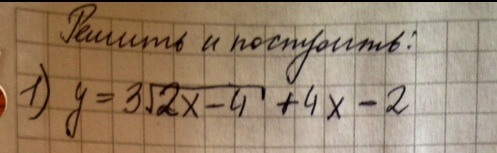 Решить и построить:
1) y = 3√2x-4 + 4x - 2